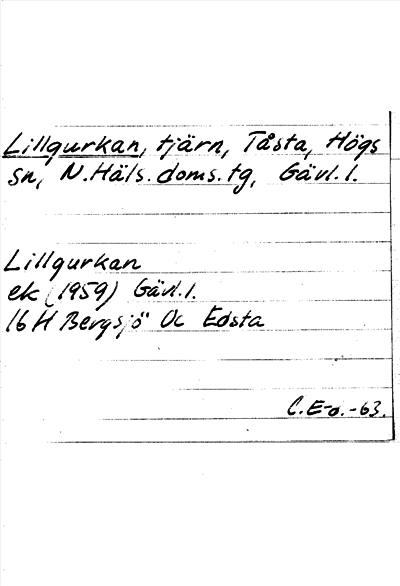 Lillgurkan, tjärn, Tåsta, Högs
sn, N.Häls.doms.tg, Gävl.l.
Lillgurkan
ek (1959) Gävl.l.
16H Bergsjö Oc Edsta
C.E-o.-63.